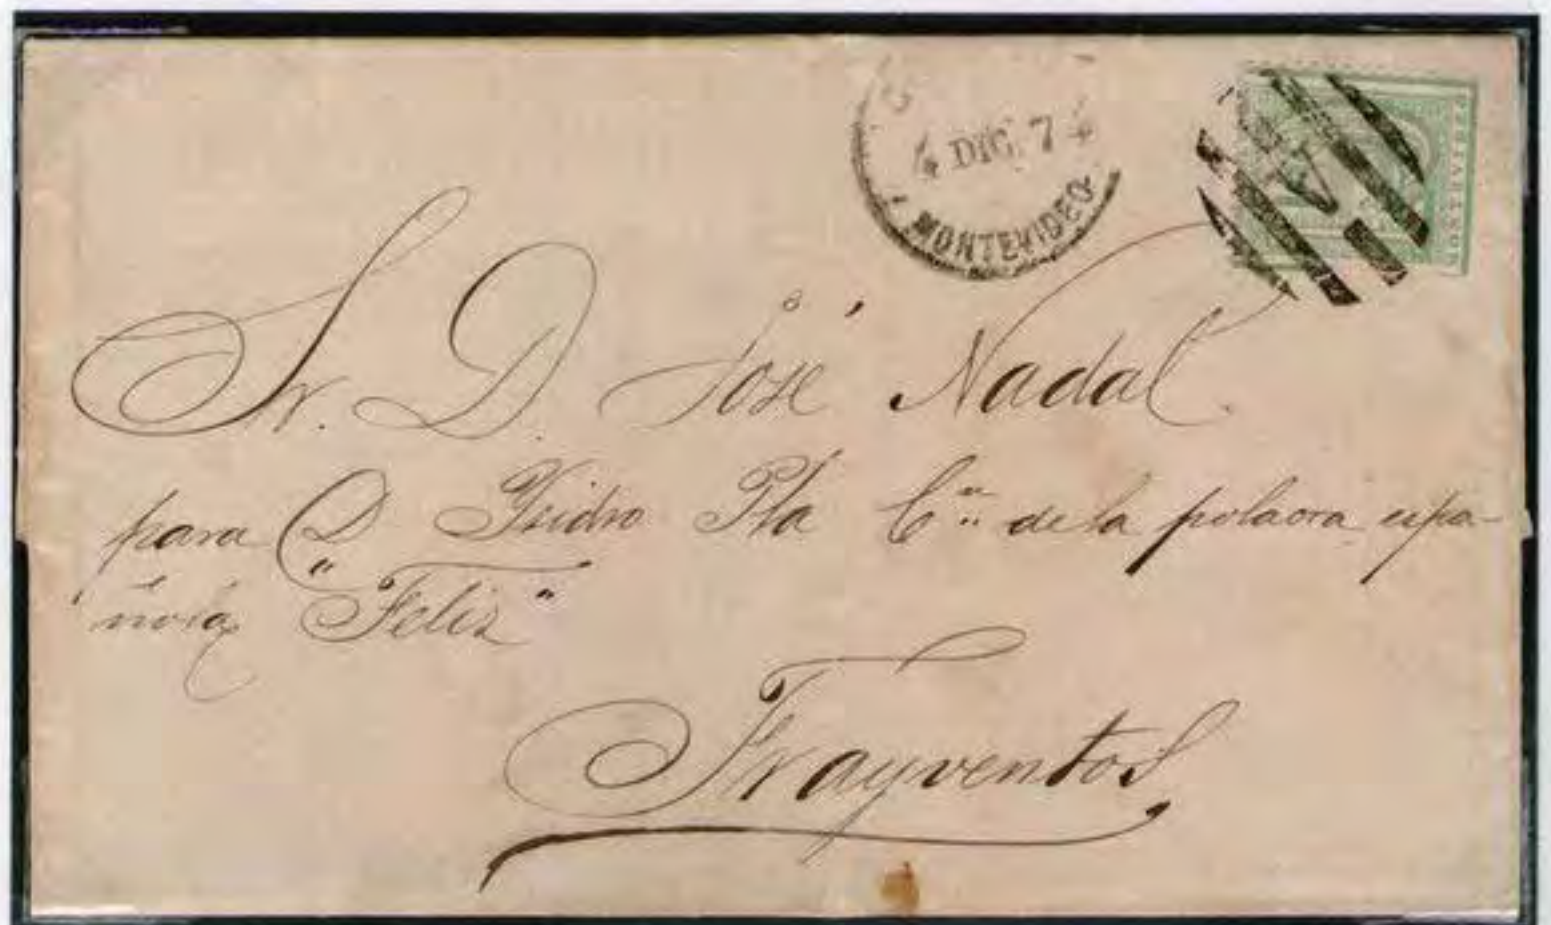 4 DIC. 74
MONTEVIDEO
Sr. D. José Nadal
para D. Isidro Pla C.n de la polacra espa-
ñola "Feliz"
Frayventos